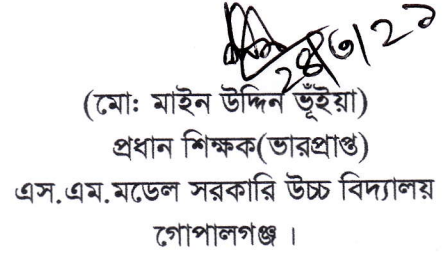 (মো: মাইন উদ্দিন ভূঁইয়া)
প্রধান শিক্ষক(ভারপ্রাপ্ত)
এস.এম.মডেল সরকারি উচ্চ বিদ্যালয়
গোপালগঞ্জ ।